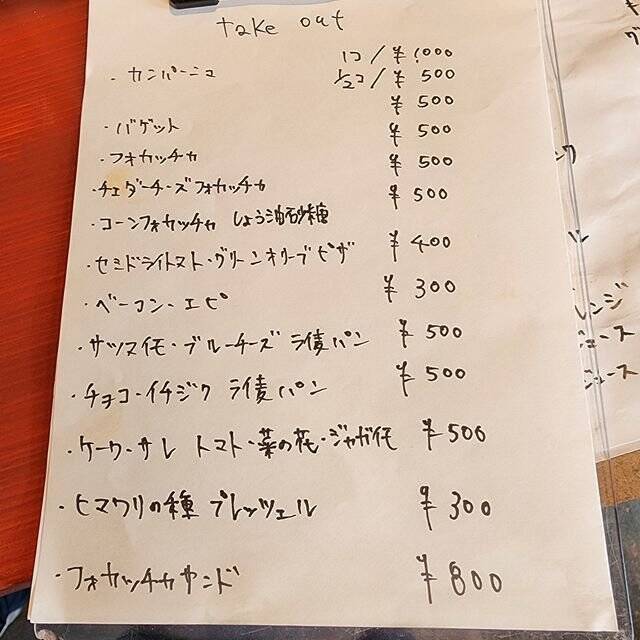 take out
・カンパーニュ 1コ/¥1000
1/2コ/¥500
・バゲット ¥500
・フォカッチャ ¥500
・チェダーチーズフォカッチャ ¥500
・コーンフォカッチャ しょう油砂糖 ¥500
・セミドライトマト・グリーンオリーブピザ ¥400
・ベーコン・エピ ¥300
・サツマイモ・ブルーチーズ ライ麦パン ¥500
・チョコ・イチジク ライ麦パン ¥500
・ケーク・サレ トマト・菜の花・ジャガイモ ¥500
・ヒマワリの種 プレッツェル ¥300
・フォカッチャサンド ¥800
レンジ
ジュース
ジュース